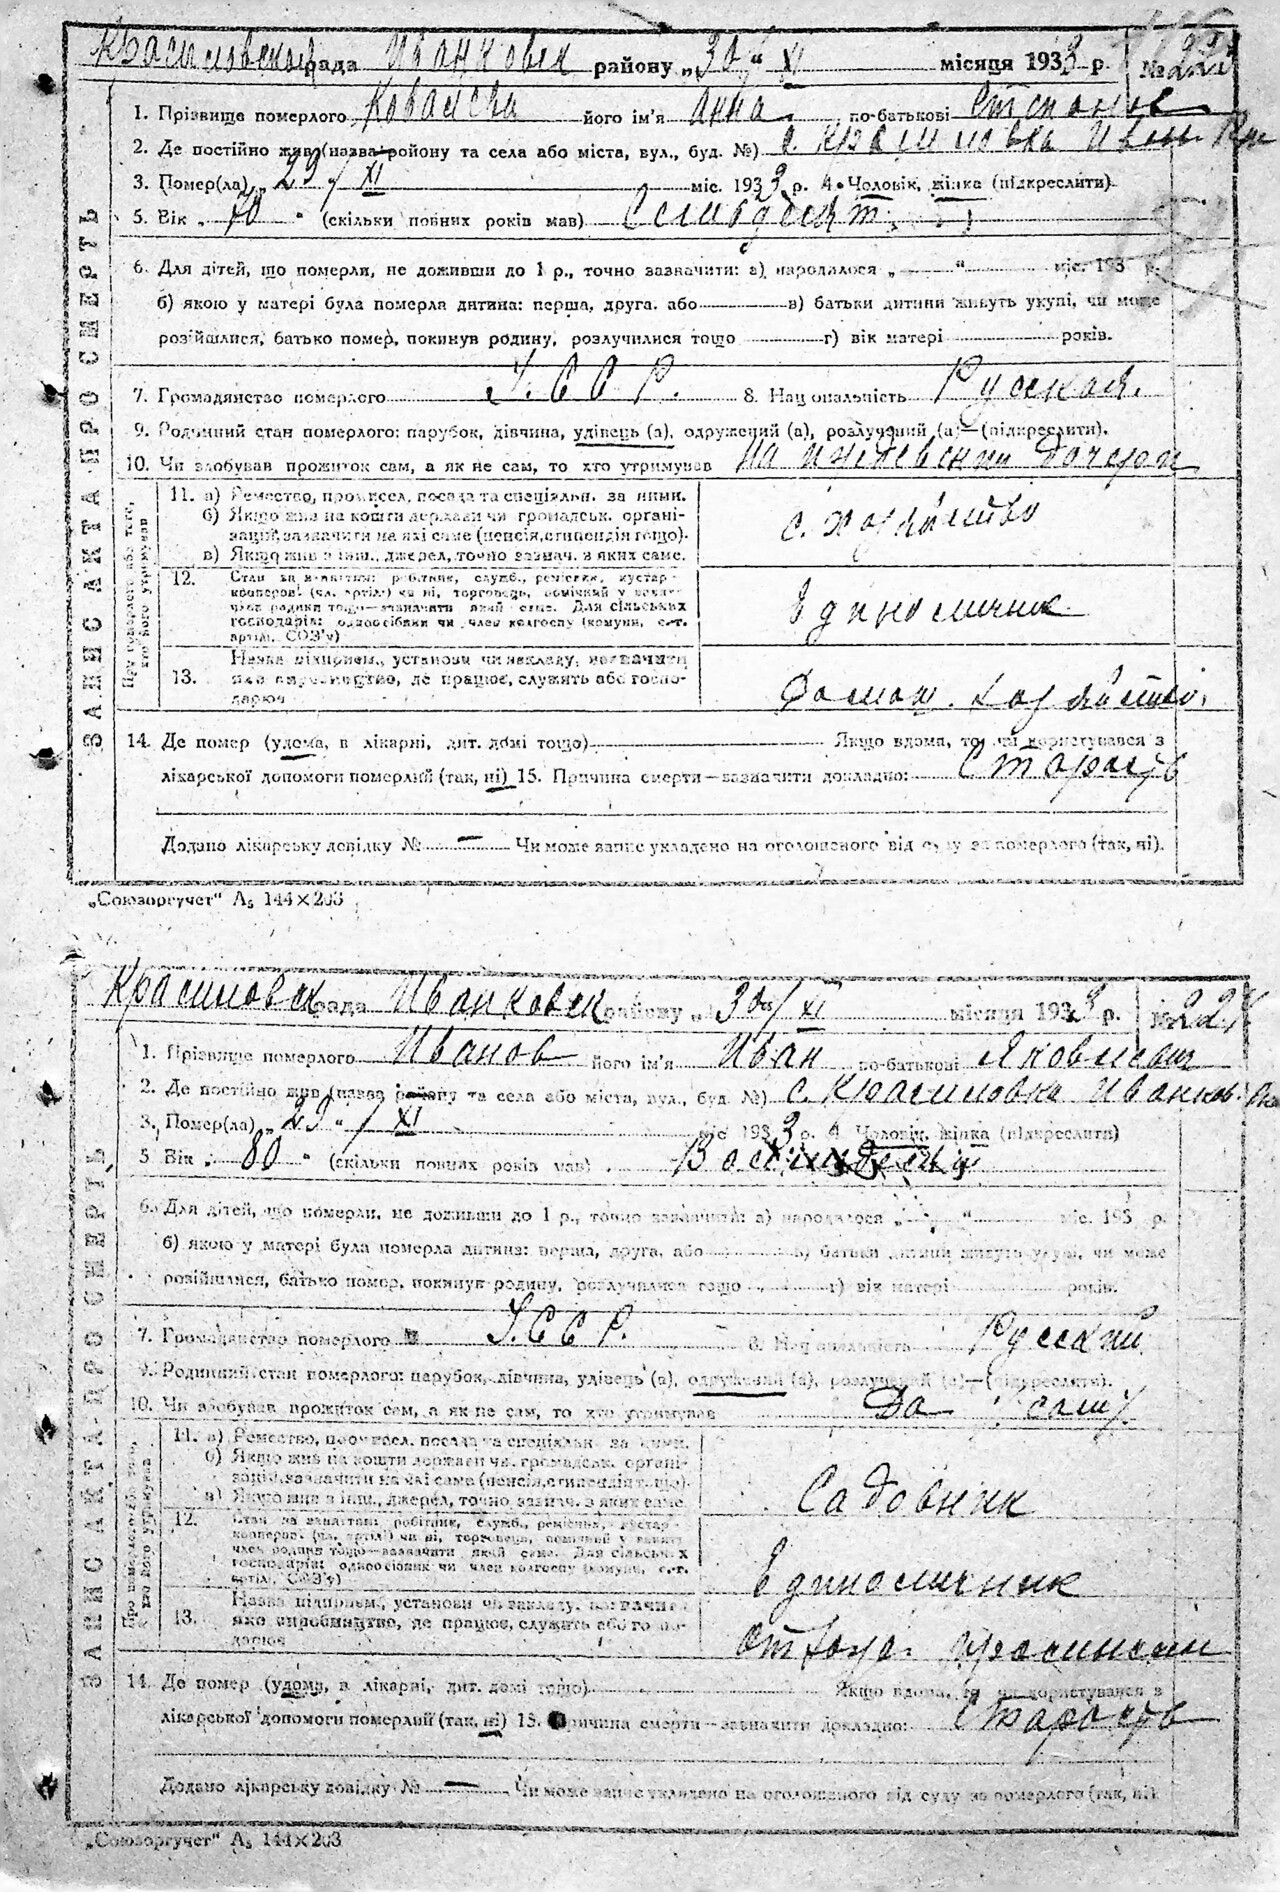 Красиловская рада Иванковск району „30/" XI місяця 1933 р. № 223
1. Прізвище померлого Ковалева його ім'я Анна по-батькові Степанов
2. Де постійно жив (назва району та села або міста, вул., буд. №) с. Красиловка Иван. Рн
3. Помер(ла) „29/ XI міс. 1933 р. 4. Чоловік, жінка (підкреслити)
5. Вік „ 70 " (скільки повних років мав) Семьдесят
6. Для дітей, що померли, не доживши до 1 р., точно зазначити: а) народилося „ " міс. 193 р.
б) якою у матері була померла дитина: перша, друга, або в) батьки дитини живуть укупі, чи може
розійшлися, батько помер, покинув родину, розлучилися тощо г) вік матері років.
7. Громадянство померлого У.С.С.Р. 8. Національність Русская.
9. Родинний стан померлого: парубок, дівчина, удівець (а), одружений (а), розлучений (а)—(підкреслити).
10. Чи здобував прожиток сам, а як не сам, то хто утримував На иждевении дочери
11. а) Ремество, промисел, посада та спеціяльн. за ними.
б) Якщо жив на кошти держави чи громадськ. органі-
зацій, зазначити на які саме (пенсія, стипендія тощо).
в) Якщо жив з інш. джерел, точно зазнач. з яких саме.
с. хозяйство
12. Стан за заняттям: робітник, служб., ремісник, кустар
господарів: одноосібник чи член колгоспу (комуни, с.-г.
артіл. СОЗ'у)
Единоличник
13. Назва підприєм., установи чи закладу, зазначити
яке виробництво, де працює, служить або госпо-
дарює
Домаш. хозяйство.
14. Де помер (удома, в лікарні, дит. домі тощо) Якщо вдома, то чи користувався з
лікарської допомоги померлий (так, ні) 15. Причина смерти—зазначити докладно: Старость
Додано лікарську довідку № — Чи може запис укладено на оголошеного від суду за померлого (так, ні).
ЗАПИС АКТА ПРО СМЕРТЬ
„Союзоргучет" А5 144×203
Красиловск рада Иванковск району „30/ XI місяця 1933 р. № 224
1. Прізвище померлого Иванов його ім'я Иван по-батькові Яковлевич
2. Де постійно жив (назва району та села або міста, вул., буд. №) с. Красиловка Иванков.
3. Помер(ла) „29 "/ XI міс 1933 р. 4 Чоловік, жінка (підкреслити)
5 Вік „ 80 " (скільки повних років мав)
6. Для дітей, що померли, не доживши до 1 р., точно зазначити: а) народилося „ " міс. 193 р.
б) якою у матері була померла дитина: перша, друга, або в) батьки дитини живуть укупі, чи може
розійшлися, батько помер, покинув родину, розлучилися тощо г) вік матері років.
7. Громадянство померлого У.С.С.Р. 8. Національність Русский
9. Родинний стан померлого: парубок, дівчина, удівець (а), одружений (а), розлучений (а)—(підкреслити).
10. Чи здобував прожиток сам, а як не сам, то хто утримував Да сам
11. а) Ремество, промисел, посада та спеціяльн. за ними.
б) Якщо жив на кошти держави чи громадськ. органі-
зацій, зазначити на які саме (пенсія, стипендія тощо).
в) Якщо жив з інш. джерел, точно зазнач. з яких саме
Садовник
12. Стан за заняттям: робітник, служб., ремісник, кустар
господарів: одноосібник чи член колгоспу (комуни, с.-г.
артіл. СОЗ'у)
Единоличник
13. Назва підприєм., установи чи закладу, зазначити
яке виробництво, де працює, служить або госпо-
дарює
14. Де помер (удома, в лікарні, дит. домі тощо) Якщо вдома, то чи користувався з
лікарської допомоги померлий (так, ні) 15. Причина смерти—зазначити докладно: Старость
Додано лікарську довідку № — Чи може запис укладено на оголошеного від суду за померлого (так, ні)
ЗАПИС АКТА ПРО СМЕРТЬ
„Союзоргучет" А5 144×203